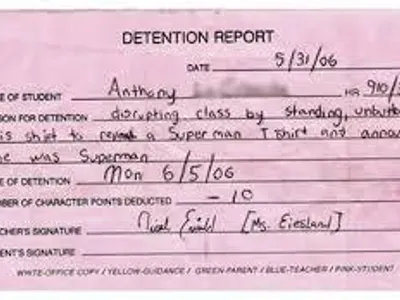 DETENTION REPORT
DATE 5/31/06
E OF STUDENT Anthony HR 910/
SON FOR DETENTION disrupting class by standing, unbutto
is shirt to reveal a Superman T shirt and annou
he was Superman
E OF DETENTION Mon 6/5/06
MBER OF CHARACTER POINTS DEDUCTED - 10
CHER'S SIGNATURE [Ms. Eiesland]
ENT'S SIGNATURE
WHITE-OFFICE COPY / YELLOW-GUIDANCE / GREEN-PARENT / BLUE-TEACHER / PINK-STUDENT